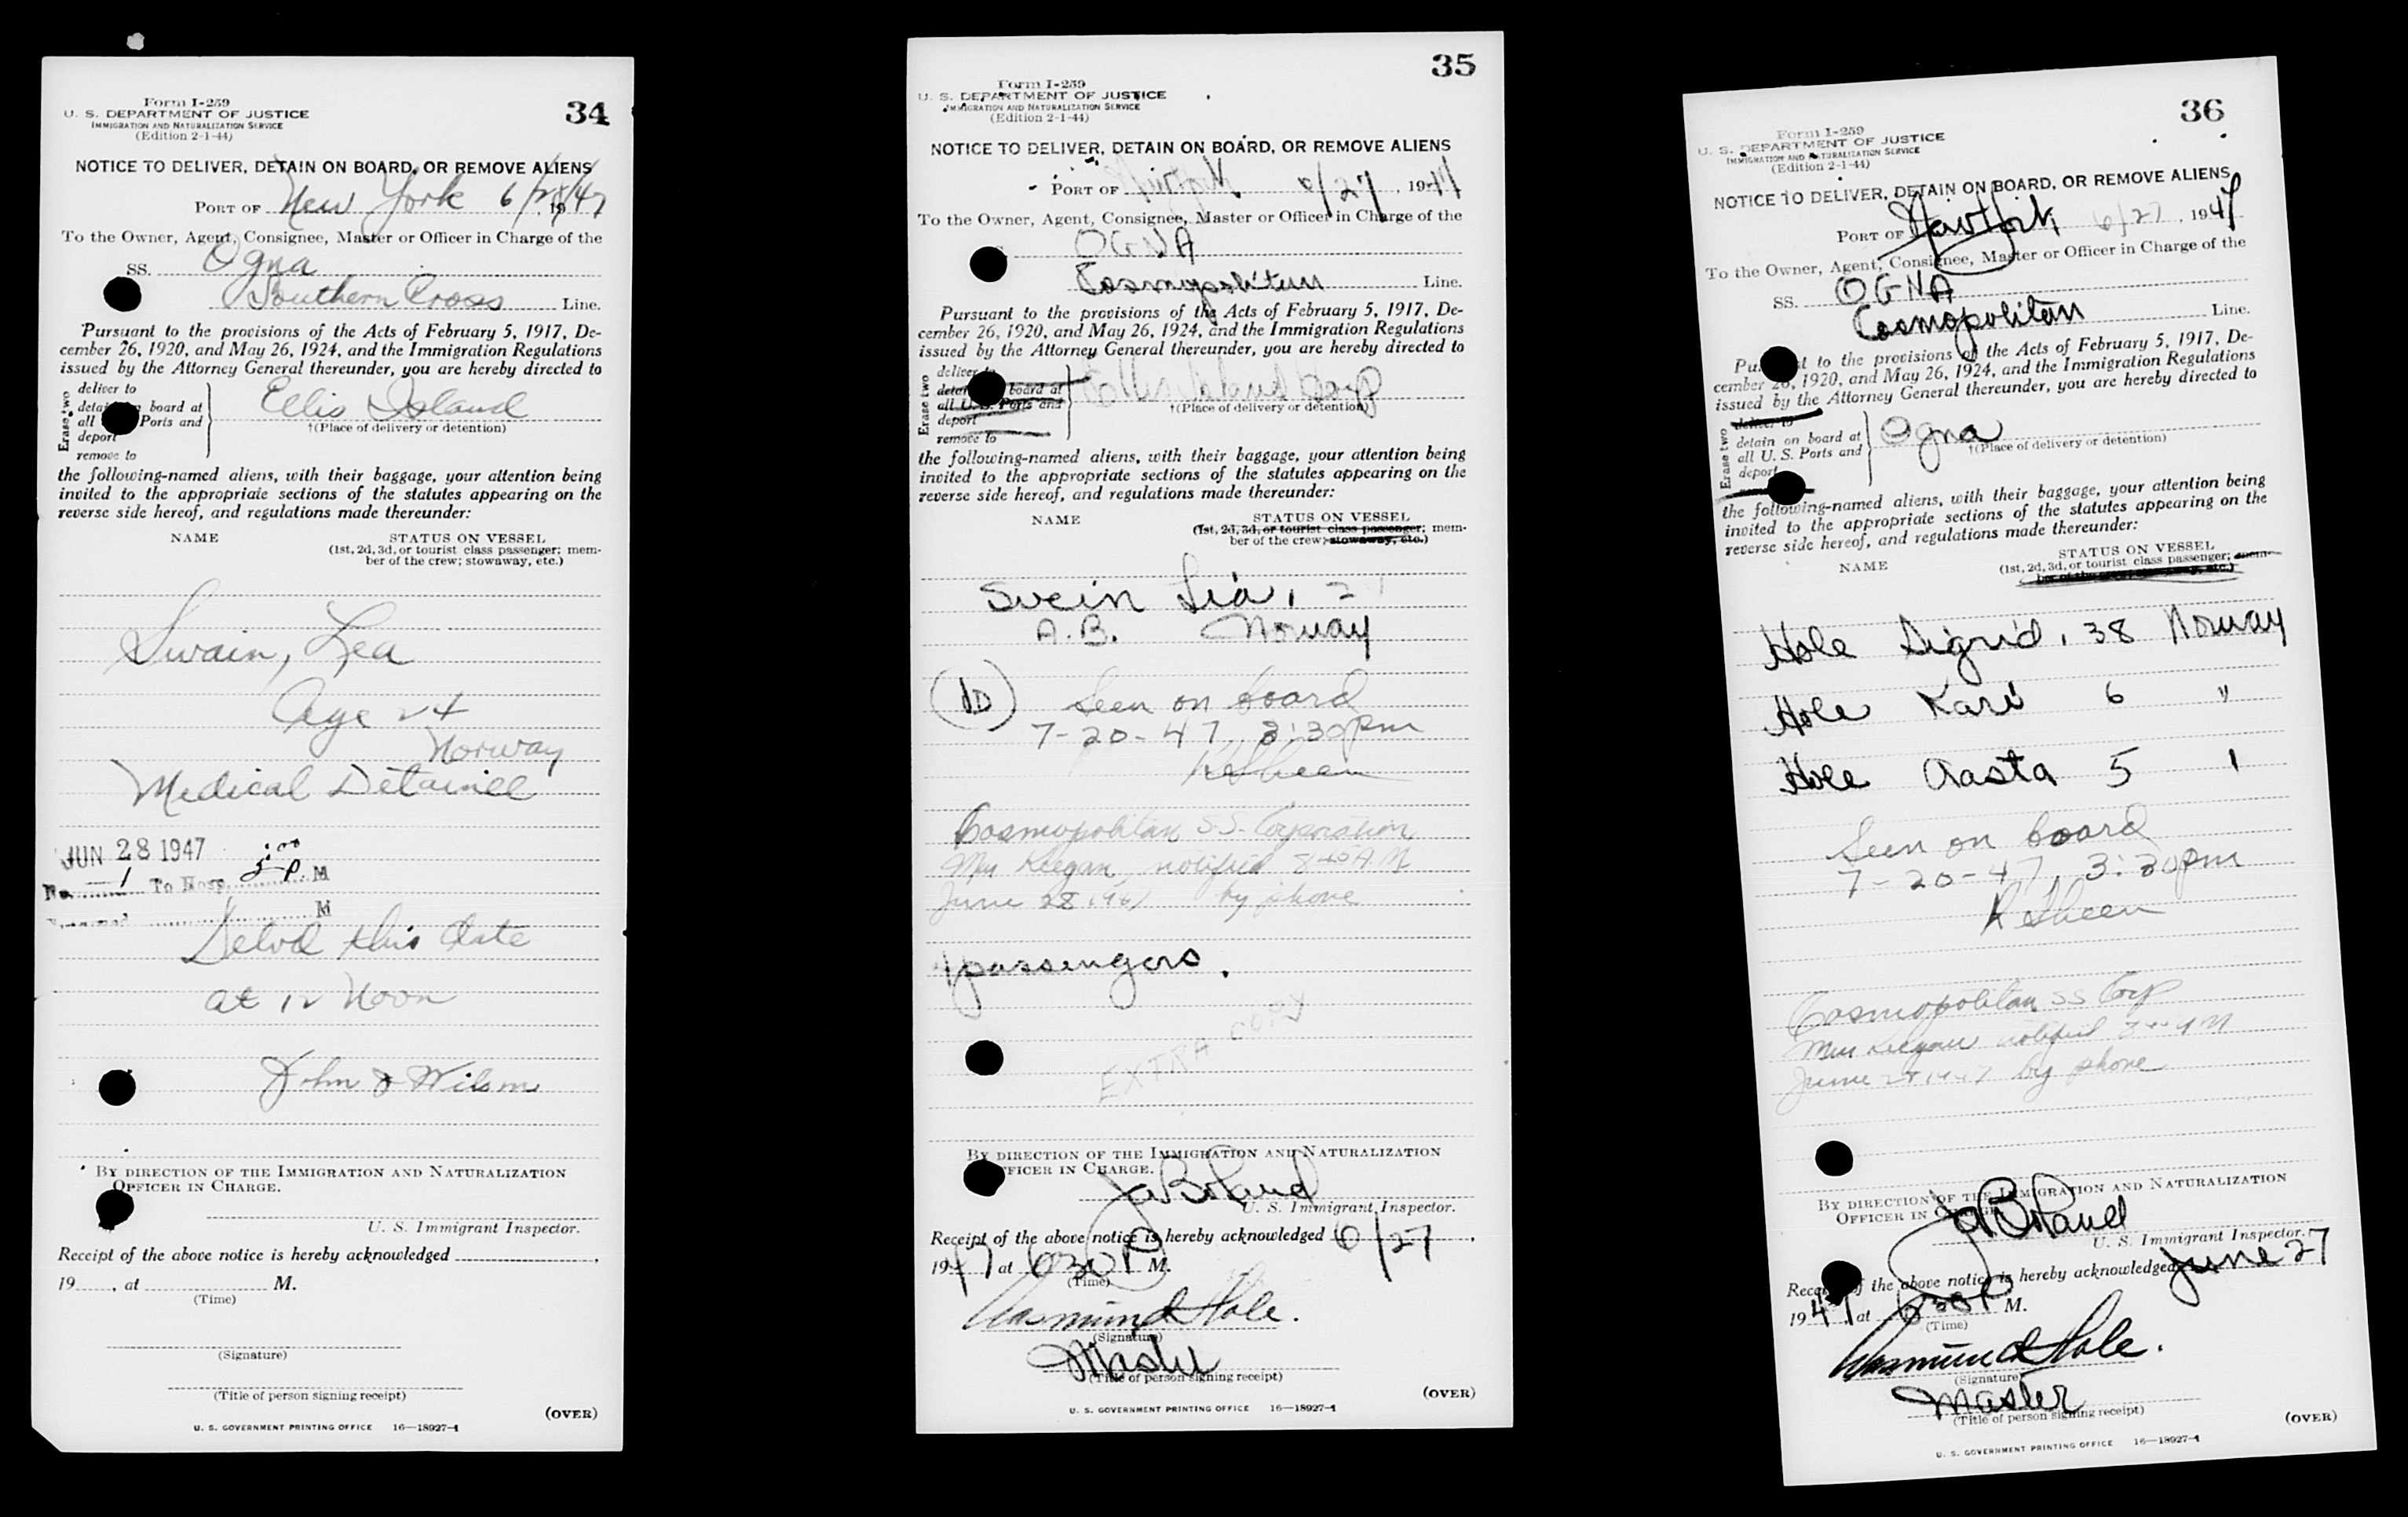 34
Form I-259
U. S. DEPARTMENT OF JUSTICE
IMMIGRATION AND NATURALIZATION SERVICE
(Edition 2-1-44)
NOTICE TO DELIVER, DETAIN ON BOARD, OR REMOVE ALIENS
PORT OF New York 6/28/47 , 19
To the Owner, Agent, Consignee, Master or Officer in Charge of the
SS. Ogna
Southern Cross Line.
Pursuant to the provisions of the Acts of February 5, 1917, De-
cember 26, 1920, and May 26, 1924, and the Immigration Regulations
issued by the Attorney General thereunder, you are hereby directed to
Erase two
deliver to
detain board at
all Ports and
deport
remove to
Ellis Island
†(Place of delivery or detention)
the following-named aliens, with their baggage, your attention being
invited to the appropriate sections of the statutes appearing on the
reverse side hereof, and regulations made thereunder:
NAME STATUS ON VESSEL
(1st, 2d, 3d, or tourist class passenger; mem-
ber of the crew; stowaway, etc.)
Swain, Lea
Age 24
Norway
Medical Detainee
JUN 28 1947
No. 1 To Hosp. 5:00 P. M
M
Delvd this date
at 12 Noon
John J Wilson
BY DIRECTION OF THE IMMIGRATION AND NATURALIZATION
OFFICER IN CHARGE.
U. S. Immigrant Inspector.
Receipt of the above notice is hereby acknowledged
19 , at M.
(Time)
(Signature)
(Title of person signing receipt)
(OVER)
U. S. GOVERNMENT PRINTING OFFICE 16—18927-1
35
Form I-259
U. S. DEPARTMENT OF JUSTICE
IMMIGRATION AND NATURALIZATION SERVICE
(Edition 2-1-44)
NOTICE TO DELIVER, DETAIN ON BOARD, OR REMOVE ALIENS
PORT OF 6/27 , 1947
To the Owner, Agent, Consignee, Master or Officer in Charge of the
OGNA
Cosmopolitan Line.
Pursuant to the provisions of the Acts of February 5, 1917, De-
cember 26, 1920, and May 26, 1924, and the Immigration Regulations
issued by the Attorney General thereunder, you are hereby directed to
Erase two
deliver
detain board at
all U. S. Ports and
deport
remove to
Ellis Island
†(Place of delivery or detention)
the following-named aliens, with their baggage, your attention being
invited to the appropriate sections of the statutes appearing on the
reverse side hereof, and regulations made thereunder:
NAME STATUS ON VESSEL
(1st, 2d, 3d, or tourist class passenger; mem-
ber of the crew; stowaway, etc.)
Svein Lia, 2
A.B. Norway
Seen on board
7-20-47 3:30pm
Cosmopolitan S.S. Corporation
Keegan notified 8:40 A.M
June 28, 1947 by phone
passengers.
EXTRA COPY
BY DIRECTION OF THE IMMIGRATION AND NATURALIZATION
OFFICER IN CHARGE.
JaBoland
U. S. Immigrant Inspector.
Receipt of the above notice is hereby acknowledged 6/27,
1947 at 630P M.
(Time)
Aasmund Hole.
(Signature)
Master
(Title of person signing receipt)
(OVER)
U. S. GOVERNMENT PRINTING OFFICE 16—18927-1
36
Form I-259
U. S. DEPARTMENT OF JUSTICE
IMMIGRATION AND NATURALIZATION SERVICE
(Edition 2-1-44)
NOTICE TO DELIVER, DETAIN ON BOARD, OR REMOVE ALIENS
PORT OF New York 6/27 , 1947
To the Owner, Agent, Consignee, Master or Officer in Charge of the
SS. OGNA
Cosmopolitan Line.
Pu t to the provisions of the Acts of February 5, 1917, De-
cember 26, 1920, and May 26, 1924, and the Immigration Regulations
issued by the Attorney General thereunder, you are hereby directed to
Erase two
deliver to
detain on board at
all U. S. Ports and
deport
Ogna
†(Place of delivery or detention)
the following-named aliens, with their baggage, your attention being
invited to the appropriate sections of the statutes appearing on the
reverse side hereof, and regulations made thereunder:
NAME STATUS ON VESSEL
(1st, 2d, 3d, or tourist class passenger; mem-
ber of the crew; stowaway, etc.)
Hole Sigrid, 38 Norway
Hole Kari 6 "
Hole Aasta 5 "
Seen on board
7-20-47, 3:30pm
Cosmopolitan SS Corp
Keegan notified
June 28 1947 by phone
BY DIRECTION OF THE IMMIGRATION AND NATURALIZATION
OFFICER IN CHARGE.
JaBoland
U. S. Immigrant Inspector.
Receipt of the above notice is hereby acknowledged June 27
1947 at 630P M.
(Time)
Aasmund Hole.
(Signature)
Master
(Title of person signing receipt)
(OVER)
U. S. GOVERNMENT PRINTING OFFICE 16—18927-1